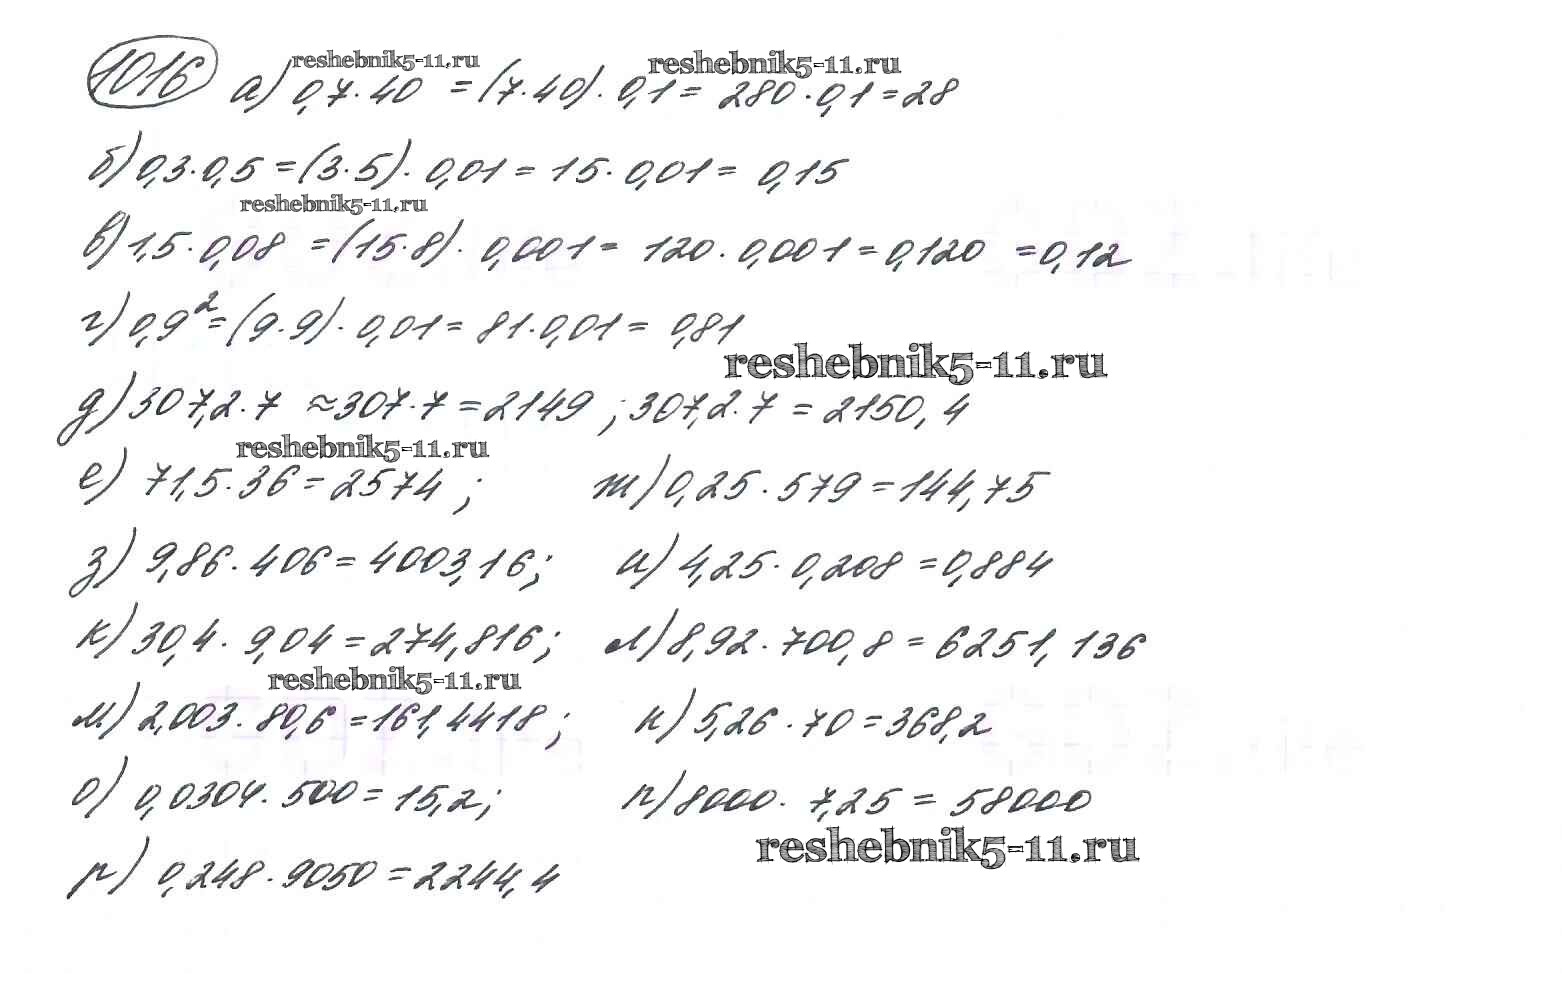 1016 reshebnik5-11.ru reshebnik5-11.ru
а) 0,7·40 =(7·40)·0,1= 280·0,1=28
б) 0,3·0,5 =(3·5)·0,01= 15·0,01= 0,15
reshebnik5-11.ru
в) 1,5·0,08 =(15·8)·0,001= 120·0,001=0,120 =0,12
г) 0,9²=(9·9)·0,01= 81·0,01= 0,81
reshebnik5-11.ru
д) 307,2·7 ≈307·7=2149 ; 307,2·7 = 2150,4
reshebnik5-11.ru
е) 71,5·36=2574 ; ж) 0,25·579=144,75
з) 9,86·406=4003,16; и) 4,25·0,208=0,884
к) 30,4·9,04=274,816; л) 8,92·700,8=6251,136
reshebnik5-11.ru
м) 2,003·80,6=161,4418; н) 5,26·70=368,2
о) 0,0304·500=15,2; п) 8000·7,25=58000
reshebnik5-11.ru
р) 0,248·9050=2244,4